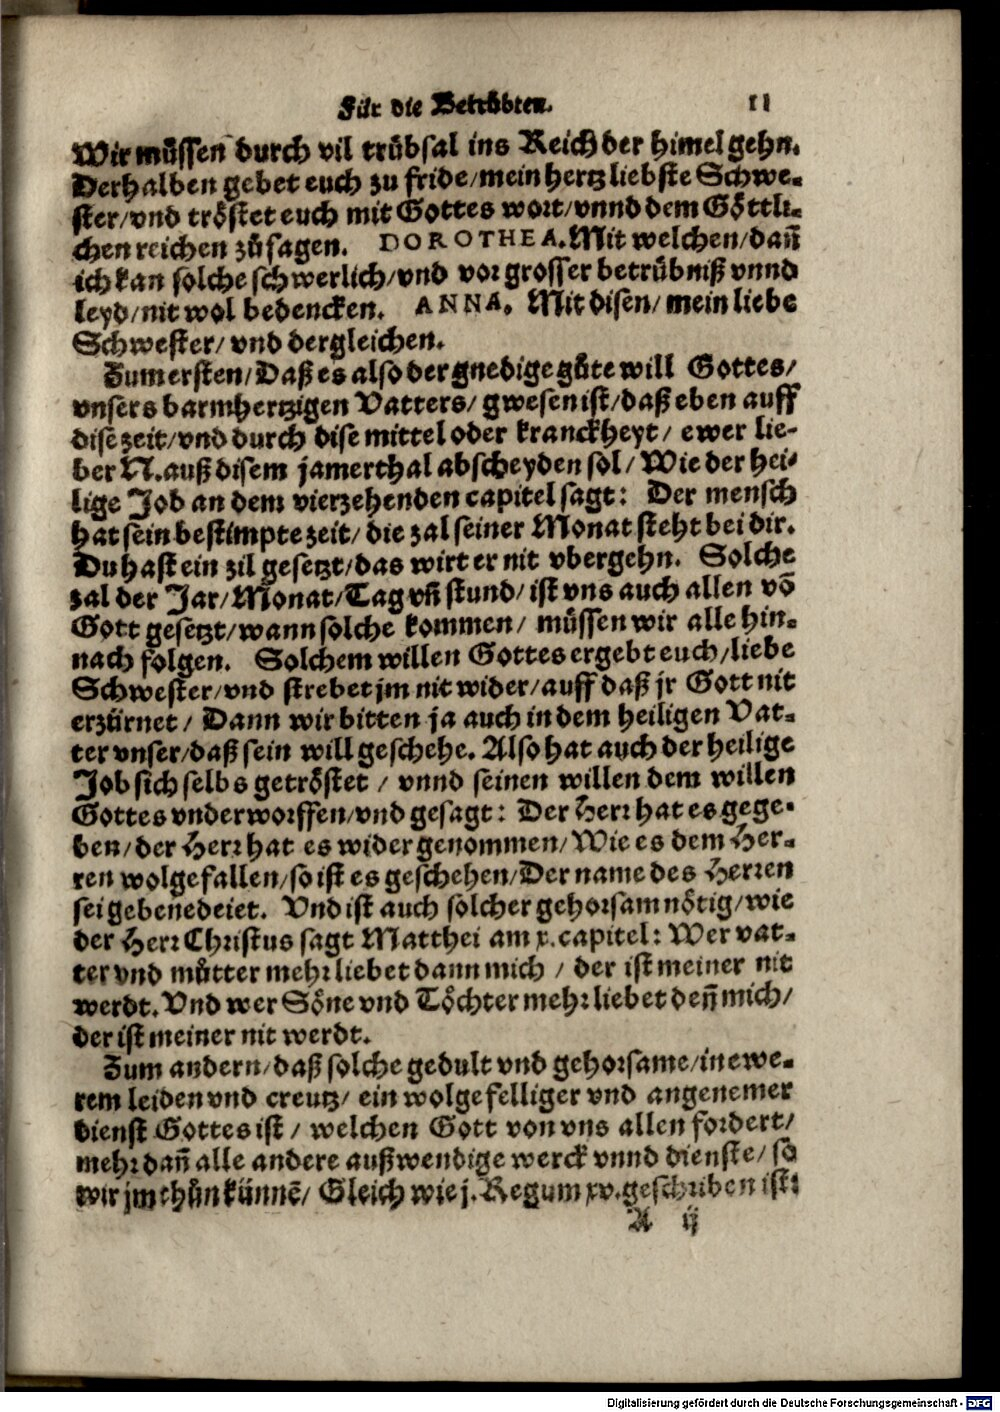 Für die Betrübten. 11
Wir müssen durch vil trübsal ins Reich der himel gehn.
Derhalben gebet euch zu fride/mein hertz liebste Schwe-
ster/vnd tröstet euch mit Gottes wort/vnnd dem Göttli-
chen reichen zůsagen. DOROTHEA. Mit welchen/dañ
ich kan solche schwerlich/vnd vor grosser betrübniß vnnd
leyd/nit wol bedencken. ANNA. Mit disen/mein liebe
Schwester/vnd dergleichen.
Zum ersten/Daß es also der gnedige gůte will Gottes/
vnsers barmhertzigen Vatters/gwesen ist/daß eben auff
dise zeit/vnd durch dise mittel oder kranckheyt/ewer lie-
ber N. auß disem jamerthal abscheyden sol/Wie der hei-
lige Job an dem vierzehenden capitel sagt: Der mensch
hat sein bestimpte zeit/die zal seiner Monat steht bei dir.
Du hast ein zil gesetzt/das wirt er nit vbergehn. Solche
zal der Jar/Monat/Tag vñ stund/ist vns auch allen võ
Gott gesetzt/wann solche kommen/müssen wir alle hin-
nach folgen. Solchem willen Gottes ergebt euch/liebe
Schwester/vnd strebet jm nit wider/auff daß jr Gott nit
erzürnet/Dann wir bitten ja auch in dem heiligen Vat-
ter vnser/daß sein will geschehe. Also hat auch der heilige
Job sich selbs getröstet/vnnd seinen willen dem willen
Gottes vnderworffen/vnd gesagt: Der Herr hat es gege-
ben/der Herr hat es wider genommen/Wie es dem Her-
ren wolgefallen/so ist es geschehen/Der name des Herren
sei gebenedeiet. Vnd ist auch solcher gehorsam nötig/wie
der Herr Christus sagt Matthei am x. capitel: Wer vat-
ter vnd můtter mehr liebet dann mich/der ist meiner nit
werdt. Vnd wer Söne vnd Töchter mehr liebet deñ mich/
der ist meiner nit werdt.
Zum andern/daß solche gedult vnd gehorsame/in ewe-
rem leiden vnd creutz/ein wolgefelliger vnd angenemer
dienst Gottes ist/welchen Gott von vns allen fordert/
mehr dañ alle andere außwendige werck vnnd dienste/so
wir jm thůn künnē/Gleich wie j. Regum xv. geschriben ist:
A ij
Digitalisierung gefördert durch die Deutsche Forschungsgemeinschaft - DFG